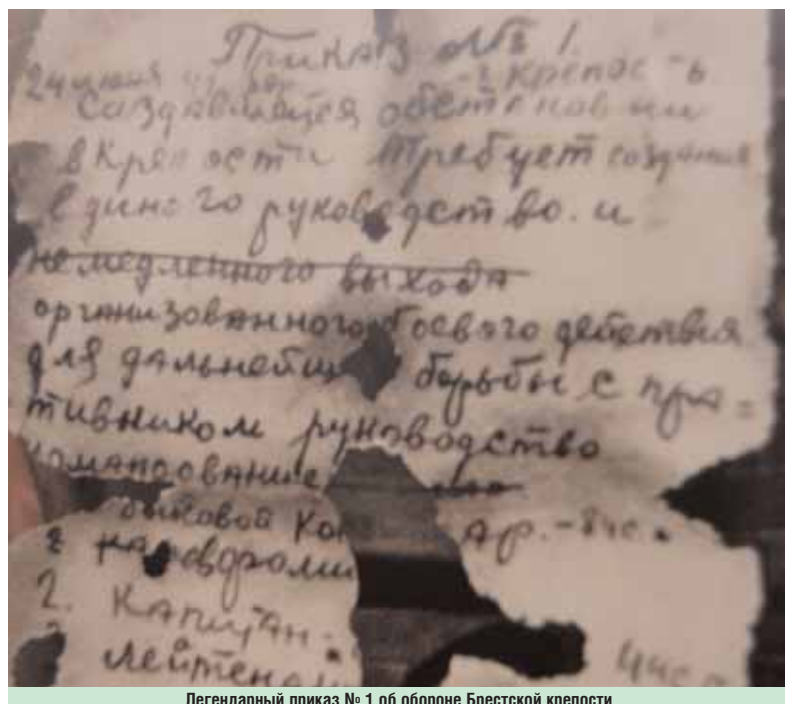 Приказ № 1.
24 июня 41 крепос-ь
Создавшаяся обстановки
в Крепости требует создания
единого руководство. и
немедленного выхода
организованного боевого действия
для дальнейш борьбы с про=
тивником руководство
командование
2
2. Капитан-
лейтенан
Легендарный приказ № 1 об обороне Брестской крепости